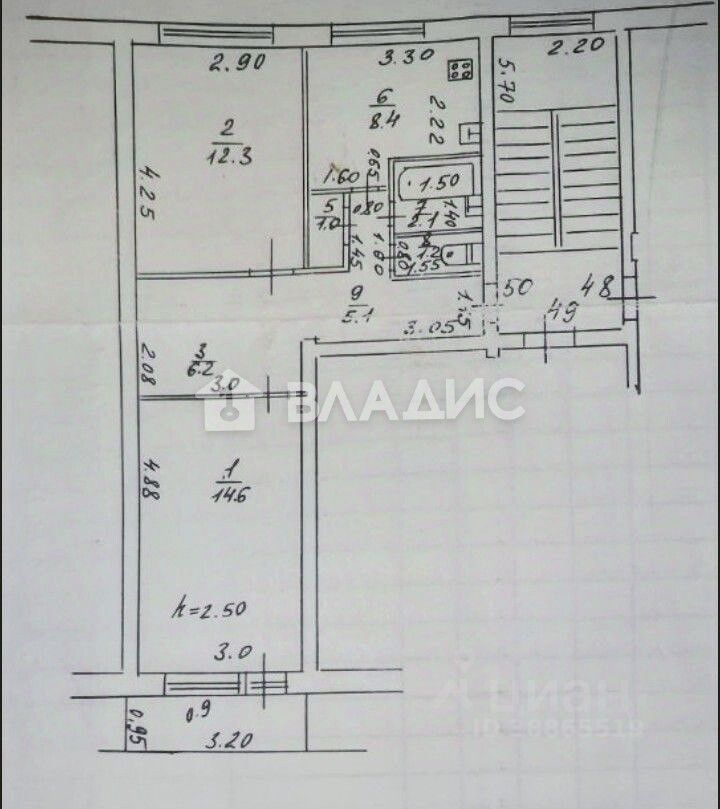 2.90
3.30
2.20
5.70
6
8.4
2.22
2
12.3
4.25
0.65
1.60
1.50
5
1.0
0.80
7
2.1
1.40
1.45
1.00
0.80
8
1.2
1.55
9
5.1
3.05
50
48
49
2.08
3
6.2
3.0
ВЛАДИС
4.88
1
14.6
h=2.50
3.0
0.9
0,95
3.20
циан